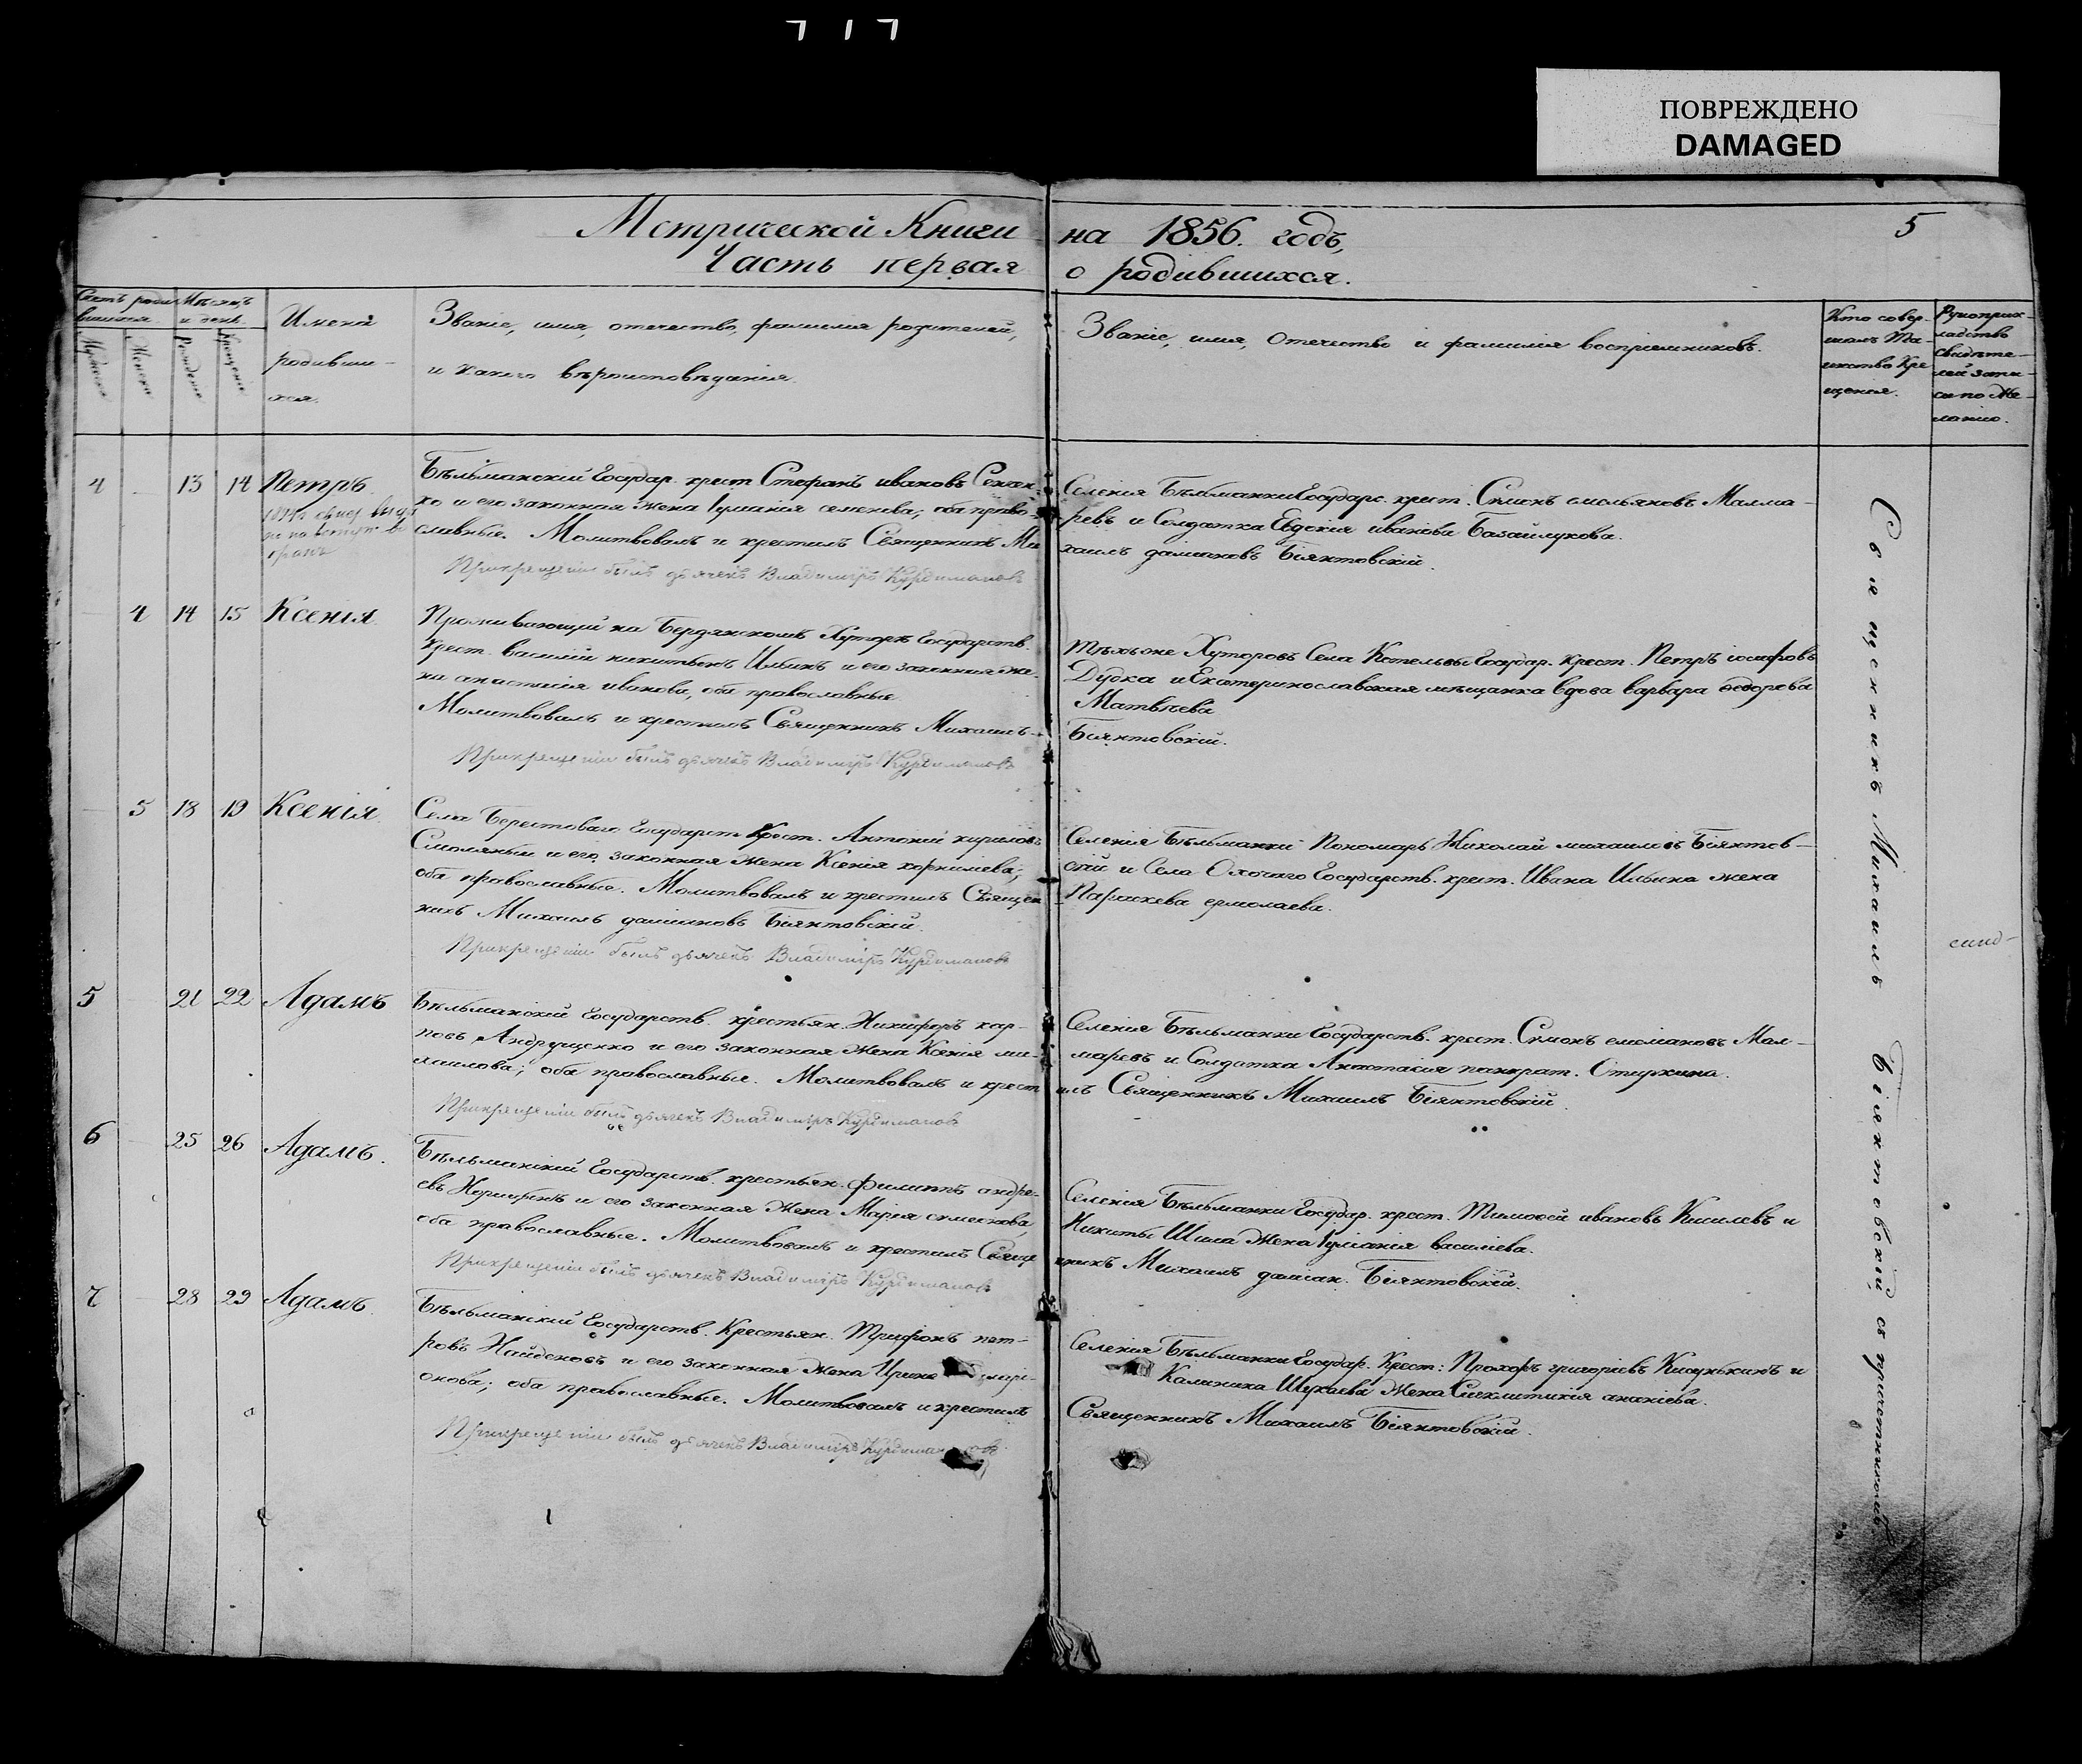 717
ПОВРЕЖДЕНО
DAMAGED
Метрической Книги на 1856. годъ,
5
Часть первая о родившихся.
Счетъ родившихся.
Мужеска
Женска
Мѣсяцъ и день.
Рожденія
Крещенія
Имена
родивши-
хся.
Званіе, имя, отечество, фамилія родителей,
и какого вѣроисповѣданія.
Званіе, имя, Отечество и фамилія воспріемниковъ.
Кто совер-
шалъ Та-
инство Кре
щенія.
Рукоприк-
ладство
свидѣте-
лей запи-
си по Же-
ланію.
4 13 14 Петръ
Бѣльманскій Государ. крест. Стефанъ ивановъ
ко и его законная жена семенова, оба право-
славные. Молитвовалъ и крестилъ Священникъ Ми
Прикрещеніи былъ дьячекъ Владиміръ Курдимановъ
Селенія Бѣльманки Государс. крест. Симонъ Малма-
ревъ и Солдатка Евдокія иванова
хаилъ даміановъ Біянтовскій.
4 14 15 Ксенія.
Проживающій на Бердянскомъ Хуторѣ Государств.
Крест. Василій никитьевъ Ильинъ и его законная же-
на анастасія иванова, оба православные
Молитвовалъ и крестилъ Священникъ Михаилъ
Прикрещеніи былъ дьячекъ Владиміръ Курдимановъ
Тѣхъ же Хуторовъ Села Котельвы Государ. Крест. Петръ іосифовъ
Дудка и Екатеринославская мѣщанка вдова варвара федорова
Матвѣева
Біянтовскій.
5 18 19 Ксенія.
Села Берестоваго Государст. Крест. Антоній кириловъ
и его законная жена Ксенія корнилева;
оба православные. Молитвовалъ и крестилъ Священ
никъ Михаилъ даміановъ Біянтовскій.
Прикрещеніи былъ дьячекъ Владиміръ Курдимановъ
Селенія Бѣльманки Пономарь Николай михаиловъ Біянтов-
скій и Села Государств. крест. Ивана Ильина жена
Параскева ермолаева.
5 21 22 Адамъ
Бѣльманскій Государств. крестьян. Никифоръ кар-
повъ Андрущенко и его законная жена Ксенія ми-
хаилова; оба православные. Молитвовалъ и крест
Прикрещеніи былъ дьячекъ Владиміръ Курдимановъ
Селенія Бѣльманки Государств. крест. Симонъ Мал-
маревъ и Солдатка Анастасія панкрат.
илъ Священникъ Михаилъ Біянтовскій.
6 25 26 Адамъ.
Бѣльманскій Государств. крестьян. филиппъ андре-
евъ и его законная жена Марія симеонова,
оба православные. Молитвовалъ и крестилъ Свяще
Прикрещеніи былъ дьячекъ Владиміръ Курдимановъ
Селенія Бѣльманки Государ. крест. Тимофей ивановъ Киселевъ и
Никиты Шила жена василіева.
нникъ Михаилъ даміан. Біянтовскій.
7 28 29 Адамъ
Бѣльманскій Государств. Крестьян. Трифонъ пет-
ровъ Найденовъ и его законная жена Ирина
онова; оба православные. Молитвовалъ и крестилъ
Прикрещеніи былъ дьячекъ Владиміръ Курдимановъ
Селенія Бѣльманки Государ. Крест: Прохоръ григоріевъ и
Калиника Шукаева жена Синклитикія ананіева.
Священникъ Михаилъ Біянтовскій.
Священникъ Михаилъ Біянтовскій съ причетникомъ